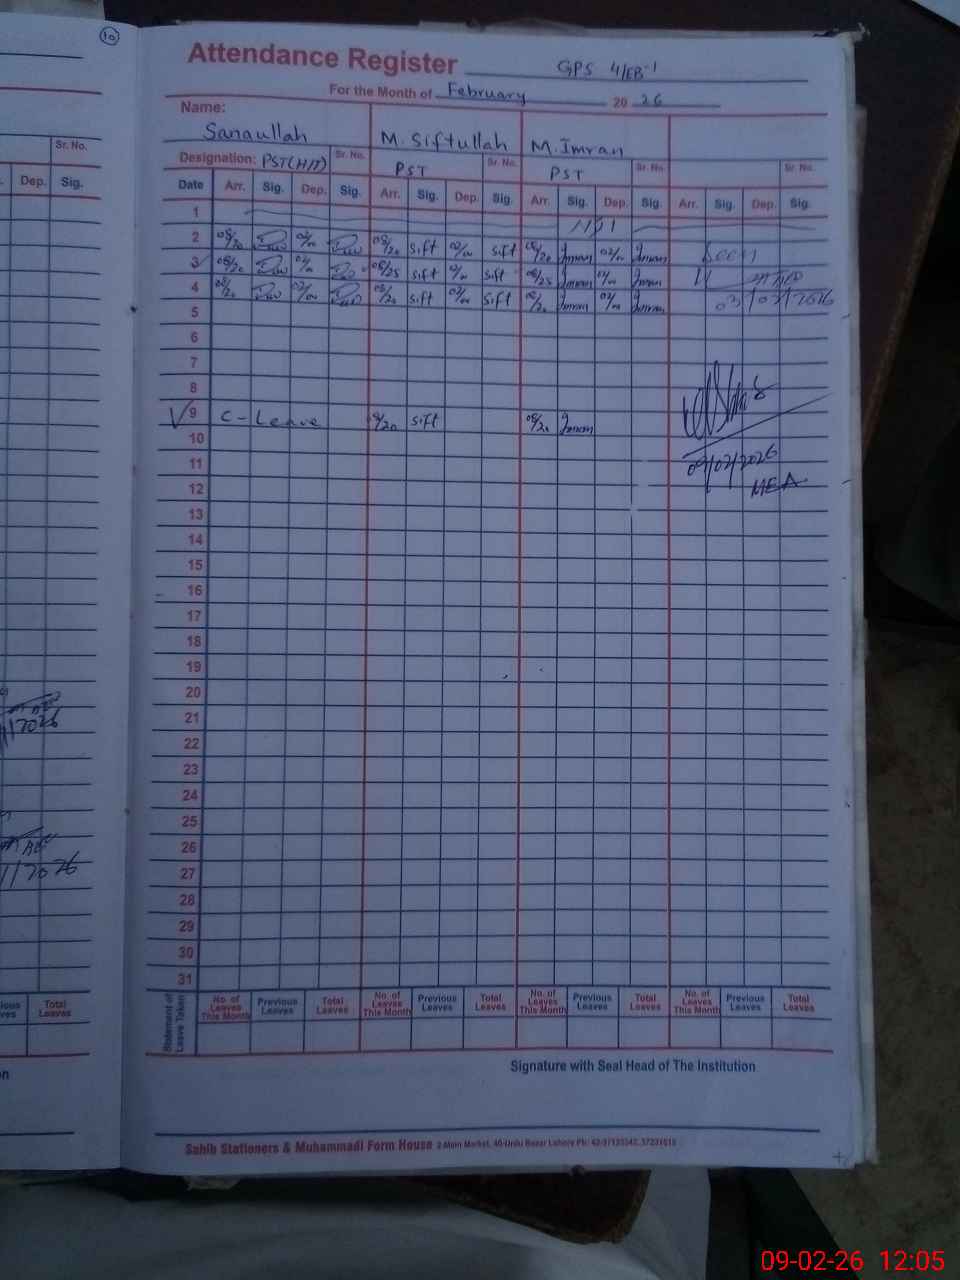 10
Attendance Register GPS 4/EB-1
For the Month of February 20 26
Name:
Sanaullah M. Siftullah M. Imran
Sr. No. Designation: PST(H/T) Sr. No. PST Sr. No. PST Sr. No. Sr. No.
Dep. Sig. Date Arr. Sig. Dep. Sig. Arr. Sig. Dep. Sig. Arr. Sig. Dep. Sig. Arr. Sig. Dep. Sig.
1
2 08/20 08/20 sift sift 08/20 Imran Imran Seen
3 08/20 08/25 sift sift 08/25 Imran Imran
4 08/20 08/20 sift sift 08/20 Imran Imran 03/02/2026
5
6
7
8
9 C-Leave 8/20 sift 08/20 Imran
10
11 09/02/2026
12 MEA
13
14
15
16
17
18
19
20
21
22
23
24
25
26
27
28
29
30
31
Total Leaves Statement of Leave Taken No. of Leaves This Month Previous Leaves Total Leaves No. of Leaves This Month Previous Leaves Total Leaves No. of Leaves This Month Previous Leaves Total Leaves No. of Leaves This Month Previous Leaves Total Leaves
Signature with Seal Head of The Institution
Sahib Stationers & Muhammadi Form House 2 Main Market, 40-Urdu Bazar Lahore Ph:
09-02-26 12:05